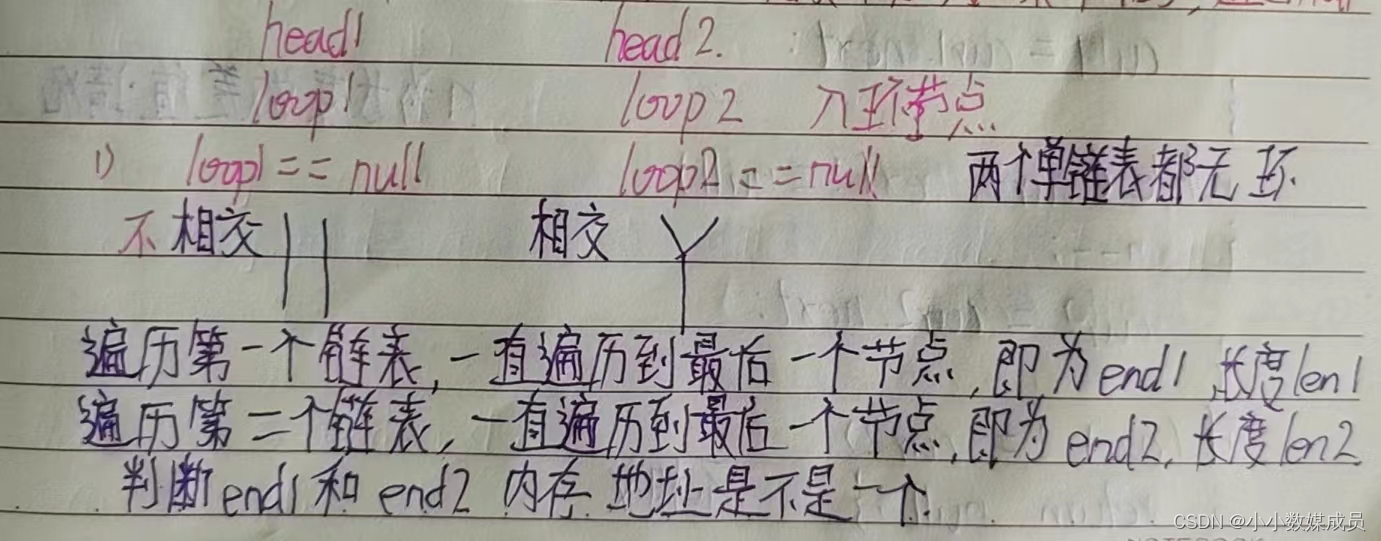 head1 head2.
loop1 loop2 入环节点
1) loop1 == null loop2 == null 两个单链表都无环.
不相交 相交
遍历第一个链表,一直遍历到最后一个节点,即为end1,长度len1
遍历第二个链表,一直遍历到最后一个节点,即为end2,长度len2
判断end1和end2内存地址是不是一个
CSDN @小小数媒成员